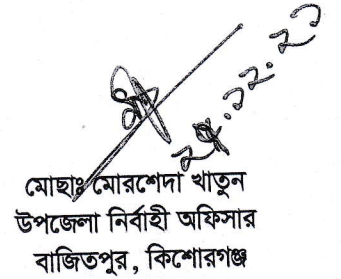 মোছাঃ মোরশেদা খাতুন
উপজেলা নির্বাহী অফিসার
বাজিতপুর, কিশোরগঞ্জ